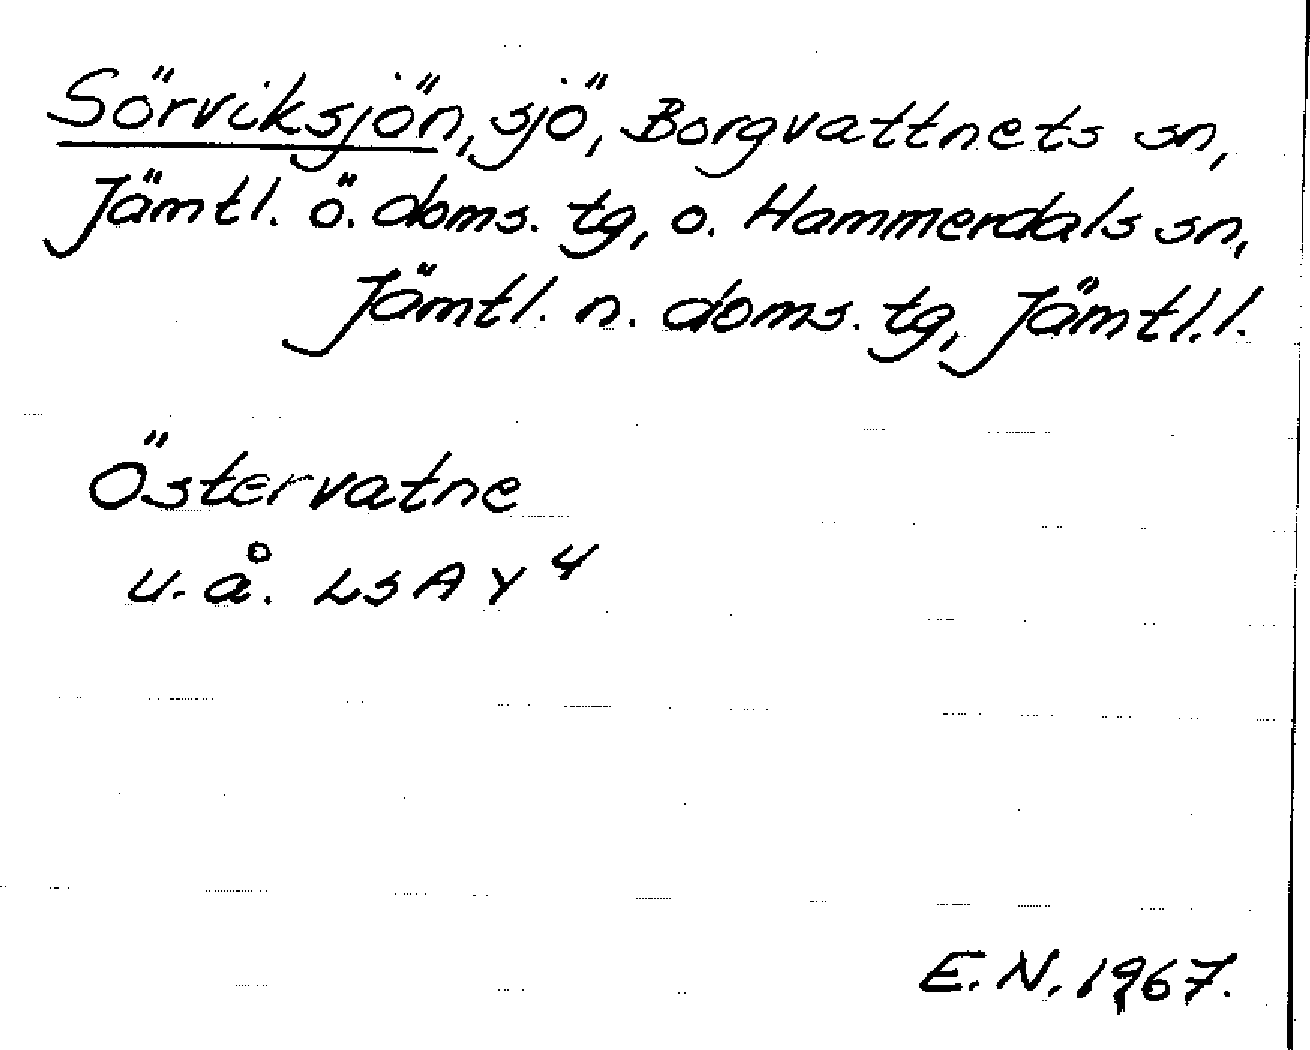 Sörviksjön, sjö, Borgvattnets sn,
Jämtl. ö. doms. tg, o. Hammerdals sn,
Jämtl. n. doms. tg, Jämtl. l.
Östervatne
u. å. LSA Y 4
E. N. 1967.